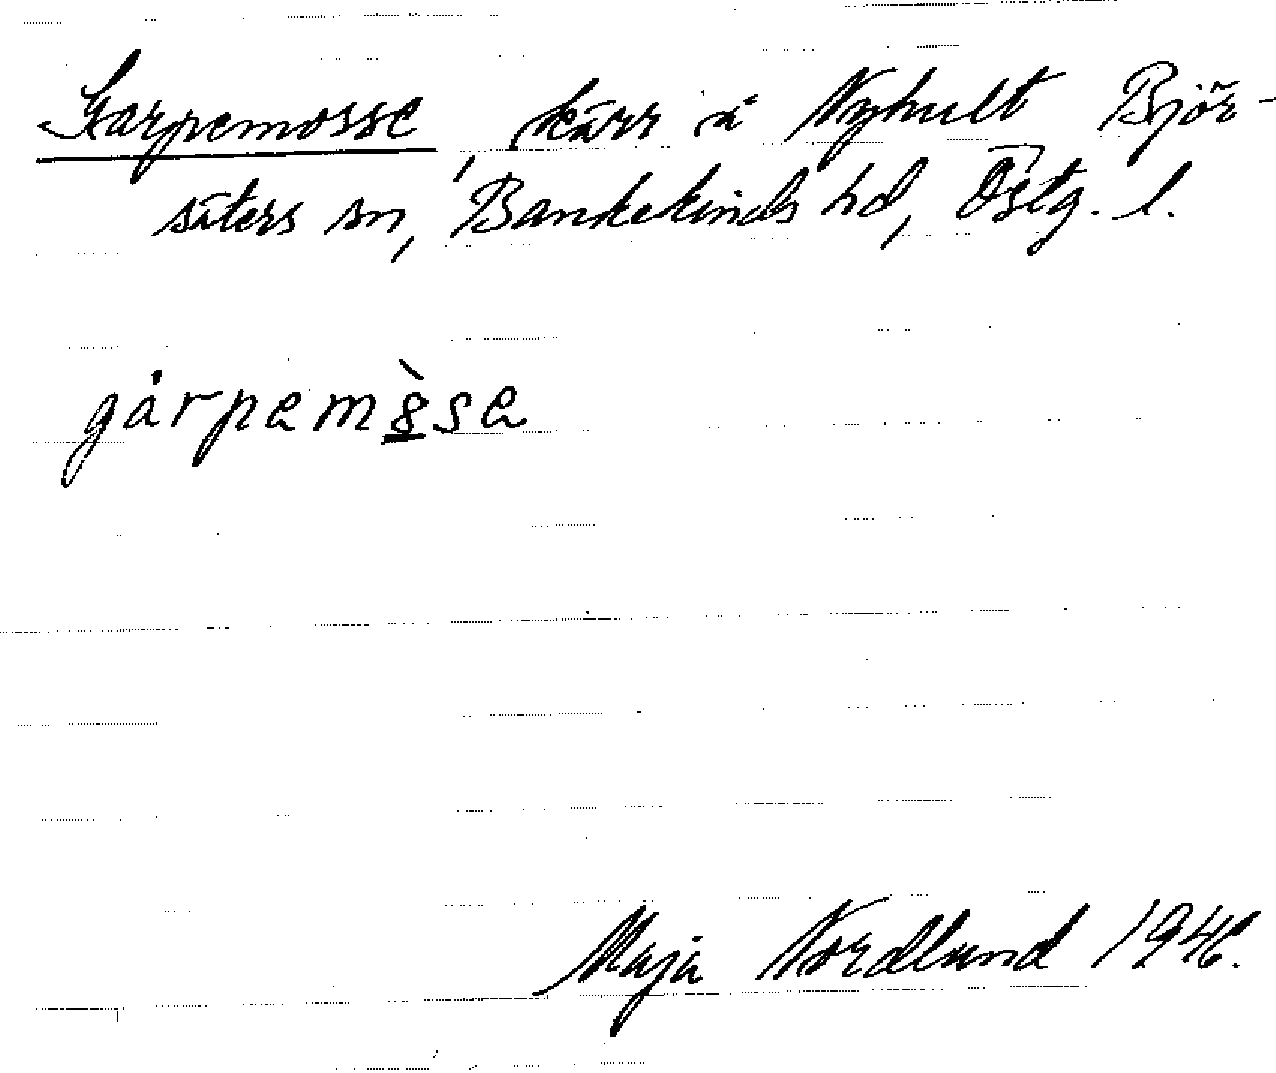 Garpemosse, kärr å Nyhult Björ-
säters sn, Bankekinds hd, Östg. l.
gárpemòse
Maja Nordlund 1946.